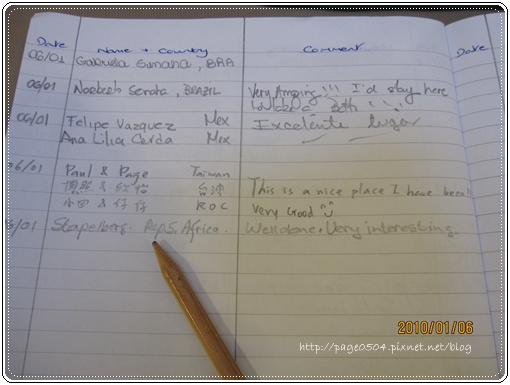 Date Name + Country Comment Date
06/01 Gabriela Simana, BRA
06/01 Norberto Senota, BRAZIL Very Amazing!!! I'd stay here
06/01 Felipe Vazquez Mex Excelente lugar
Ana Lilia Cerda Mex
06/01 Paul & Page Taiwan
台灣 This is a nice place I have been!
小田 & 仔仔 ROC Very Good
06/01 Stapelberg. Rep. S. Africa. Well done. Very interesting.
2010/01/06
http://page0504.pixnet.net/blog